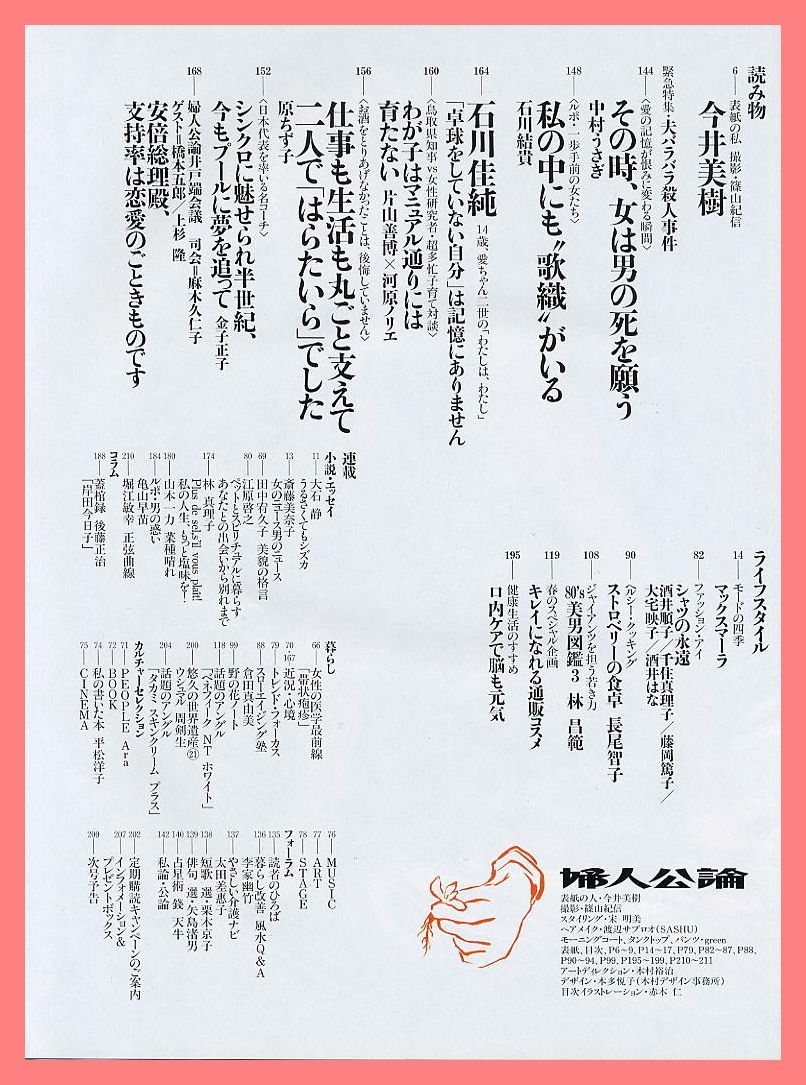 読み物
6
表紙の私 撮影・篠山紀信
今井美樹
緊急特集・夫バラバラ殺人事件
144
〈愛の記憶が恨みに変わる瞬間〉
その時、女は男の死を願う
中村うさぎ
148
〈ルポ・一歩手前の女たち〉
私の中にも〝歌織〟がいる
石川結貴
164
石川佳純 14歳、愛ちゃん二世の「わたしは、わたし」
「卓球をしていない自分」は記憶にありません
160
〈鳥取県知事vs女性研究者・超多忙子育て対談〉
わが子はマニュアル通りには
育たない 片山善博×河原ノリエ
156
〈お酒をとりあげなかったことは、後悔していません〉
仕事も生活も丸ごと支えて
二人で「はらたいら」でした
原ちず子
152
〈日本代表を率いる名コーチ〉
シンクロに魅せられ半世紀、
今もプールに夢を追って 金子正子
168
婦人公論井戸端会議 司会=麻木久仁子
ゲスト=橋本五郎/上杉 隆
安倍総理殿、
支持率は恋愛のごときものです
連載
小説・エッセイ
11
大石 静
うるさくてもシズカ
13
斎藤美奈子
女のニュース男のニュース
69
田中宥久子 美貌の格言
80
江原啓之
ペットとスピリチュアルに暮らす
あなたとの出会いから別れまで
174
林 真理子
Plus de sel,s'il vous plaît!
私の人生、もっと塩味を!
180
山本一力 菜種晴れ
184
ルポ・男の惑い
亀山早苗
210
堀江敏幸 正弦曲線
コラム
188
蓋棺録 後藤正治
「岸田今日子」
ライフスタイル
14
モードの四季
マックスマーラ
82
ファッション・アイ
シャツの永遠
酒井順子/千住真理子/藤岡篤子/
大宅映子/酒井はな
90
ヘルシー・クッキング
ストロベリーの食卓 長尾智子
108
ジャイアンツを担う若き力
80's美男図鑑3 林 昌範
119
春のスペシャル企画
キレイになれる通販コスメ
195
健康生活のすすめ
口内ケアで脳も元気
暮らし
66
女性の医学最前線
「帯状疱疹」
70・167
近況・心境
79
トレンド・フォーカス
88
スローエイジング塾
倉田真由美
99
野の花ノート
118
話題のアングル
「ベネフィーク NT ホワイト」
200
悠久の世界遺産㉑
ウシュマル 周剣生
204
話題のアングル
「タカミ スキンクリーム プラス」
カルチャーセレクション
71
PEOPLE Ara
72
BOOK
74
私の書いた本 平松洋子
75
CINEMA
76
MUSIC
77
ART
78
STAGE
フォーラム
135
読者のひろば
136
暮らし改善 風水Q&A
李家幽竹
137
やさしい介護ナビ
太田差惠子
138
短歌 選・栗木京子
139
俳句 選・矢島渚男
140
占星術 銭 天牛
142
私論・公論
202
定期購読キャンペーンのご案内
207
インフォメーション&
プレゼントボックス
209
次号予告
婦人公論
表紙の人・今井美樹
撮影・篠山紀信
スタイリング・宋 明美
ヘアメイク・渡辺サブロオ(SASHU)
モーニングコート、タンクトップ、パンツ・green
表紙、目次、P6~9、P14~17、P79、P82~87、P88、
P90~94、P99、P195~199、P210~211
アートディレクション・木村裕治
デザイン・本多悦子(木村デザイン事務所)
目次イラストレーション・赤木 仁